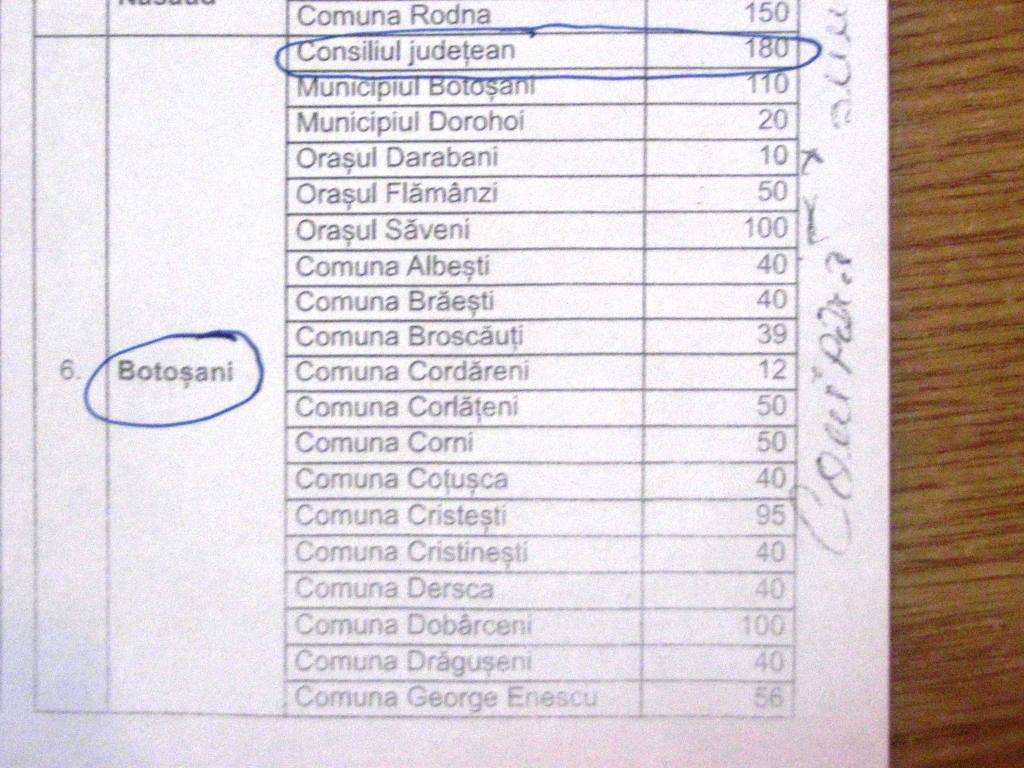 Comuna Rodna 150
Consiliul județean 180
Municipiul Botoșani 110
Municipiul Dorohoi 20
Orașul Darabani 10
Orașul Flămânzi 50
Orașul Săveni 100
Comuna Albești 40
Comuna Brăești 40
Comuna Broscăuți 39
6. Botoșani Comuna Cordăreni 12
Comuna Corlățeni 50
Comuna Corni 50
Comuna Coțușca 40
Comuna Cristești 95
Comuna Cristinești 40
Comuna Dersca 40
Comuna Dobârceni 100
Comuna Drăgușeni 40
Comuna George Enescu 56